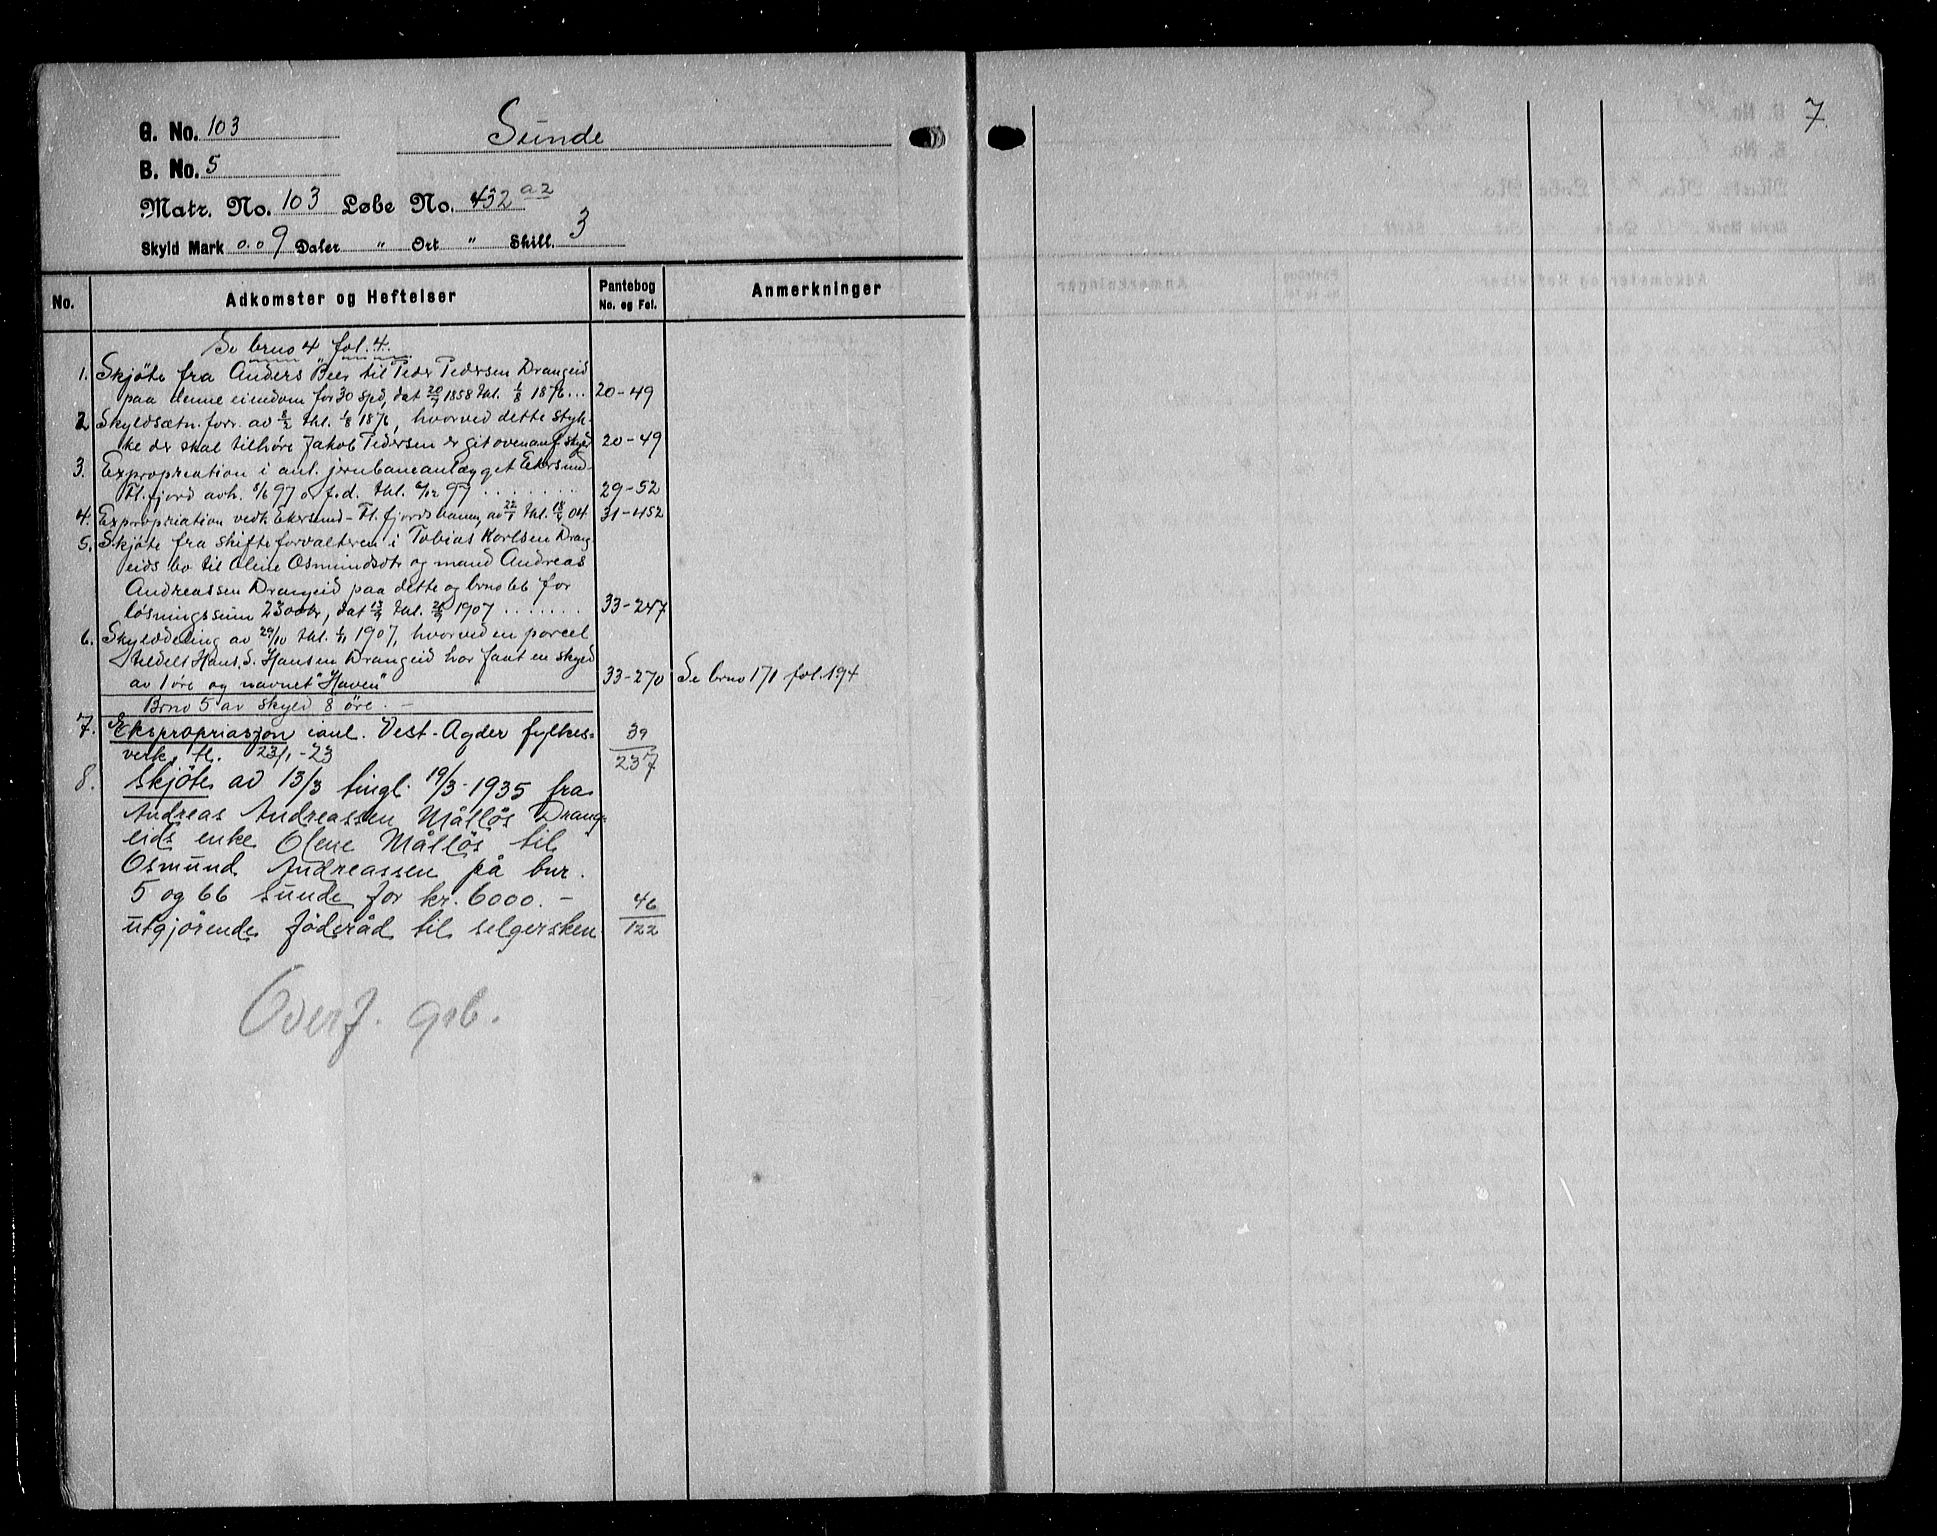 G. No. 103
Sunde
7.
B. No. 5
Matr. No. 103 Løbe No. 432 a2
Skyld Mark 0.09 Daler " Ort " Skill. 3
No. Adkomster og Heftelser Pantebog No. og Fol. Anmerkninger
Se brno 4 fol. 4.
1. Skjöte fra Anders Beer til Peder Pedersen Drangeid
paa denne eiendom for 30 Spd, dat 20/7 1858 thl. 1/8 1876... 20-49
2 Skyldsætn.forr. av 8/2 thl. 1/8 1876, hvorved dette styk-
ke der skal tilhöre Jakob Pedersen er git ovenanf. skyld 20-49
3. Expropriation i anl. jernbaneanlægget Ekersund-
Fl.fjord avh. 8/6 97 o. f. d. thl. 6/12 99 ........ 29-52
4. Expropriation vedk. Ekersund-Fl.fjordsbanen, av 22/1 thl. 18/4 04 31-452
5. Skjöte fra skifteforvalteren i Tobias Karlsen Drang
eids bo til Oline Osmundsdtr og mand Andreas
Andreassen Drangeid paa dette og brno 66 for
løsningssum 2300 kr, dat 13/9 thl. 26/9 1907 ....... 33-247
6. Skylddeling av 29/10 thl. 1/11 1907, hvorved en parcel
tildelt Hans S. Hansen Drangeid har faat en skyld
av 1 øre og navnet "Haven" 33-270 Se brno 171 fol. 194
Brno 5 av skyld 8 øre. -
7. Ekspropriasjon i anl. Vest-Agder fylkes= 39
verk, tl. 23/1-23 237
8. Skjöte av 13/3 tingl. 19/3-1935 fra
Andreas Andreassen Mållös Drang-
eids enke Olene Mållös til
Osmund Andreassen på bnr.
5 og 66 Sunde for kr. 6000.- 46
utgjörende föderåd til selgersken 122
Overf. gsb.